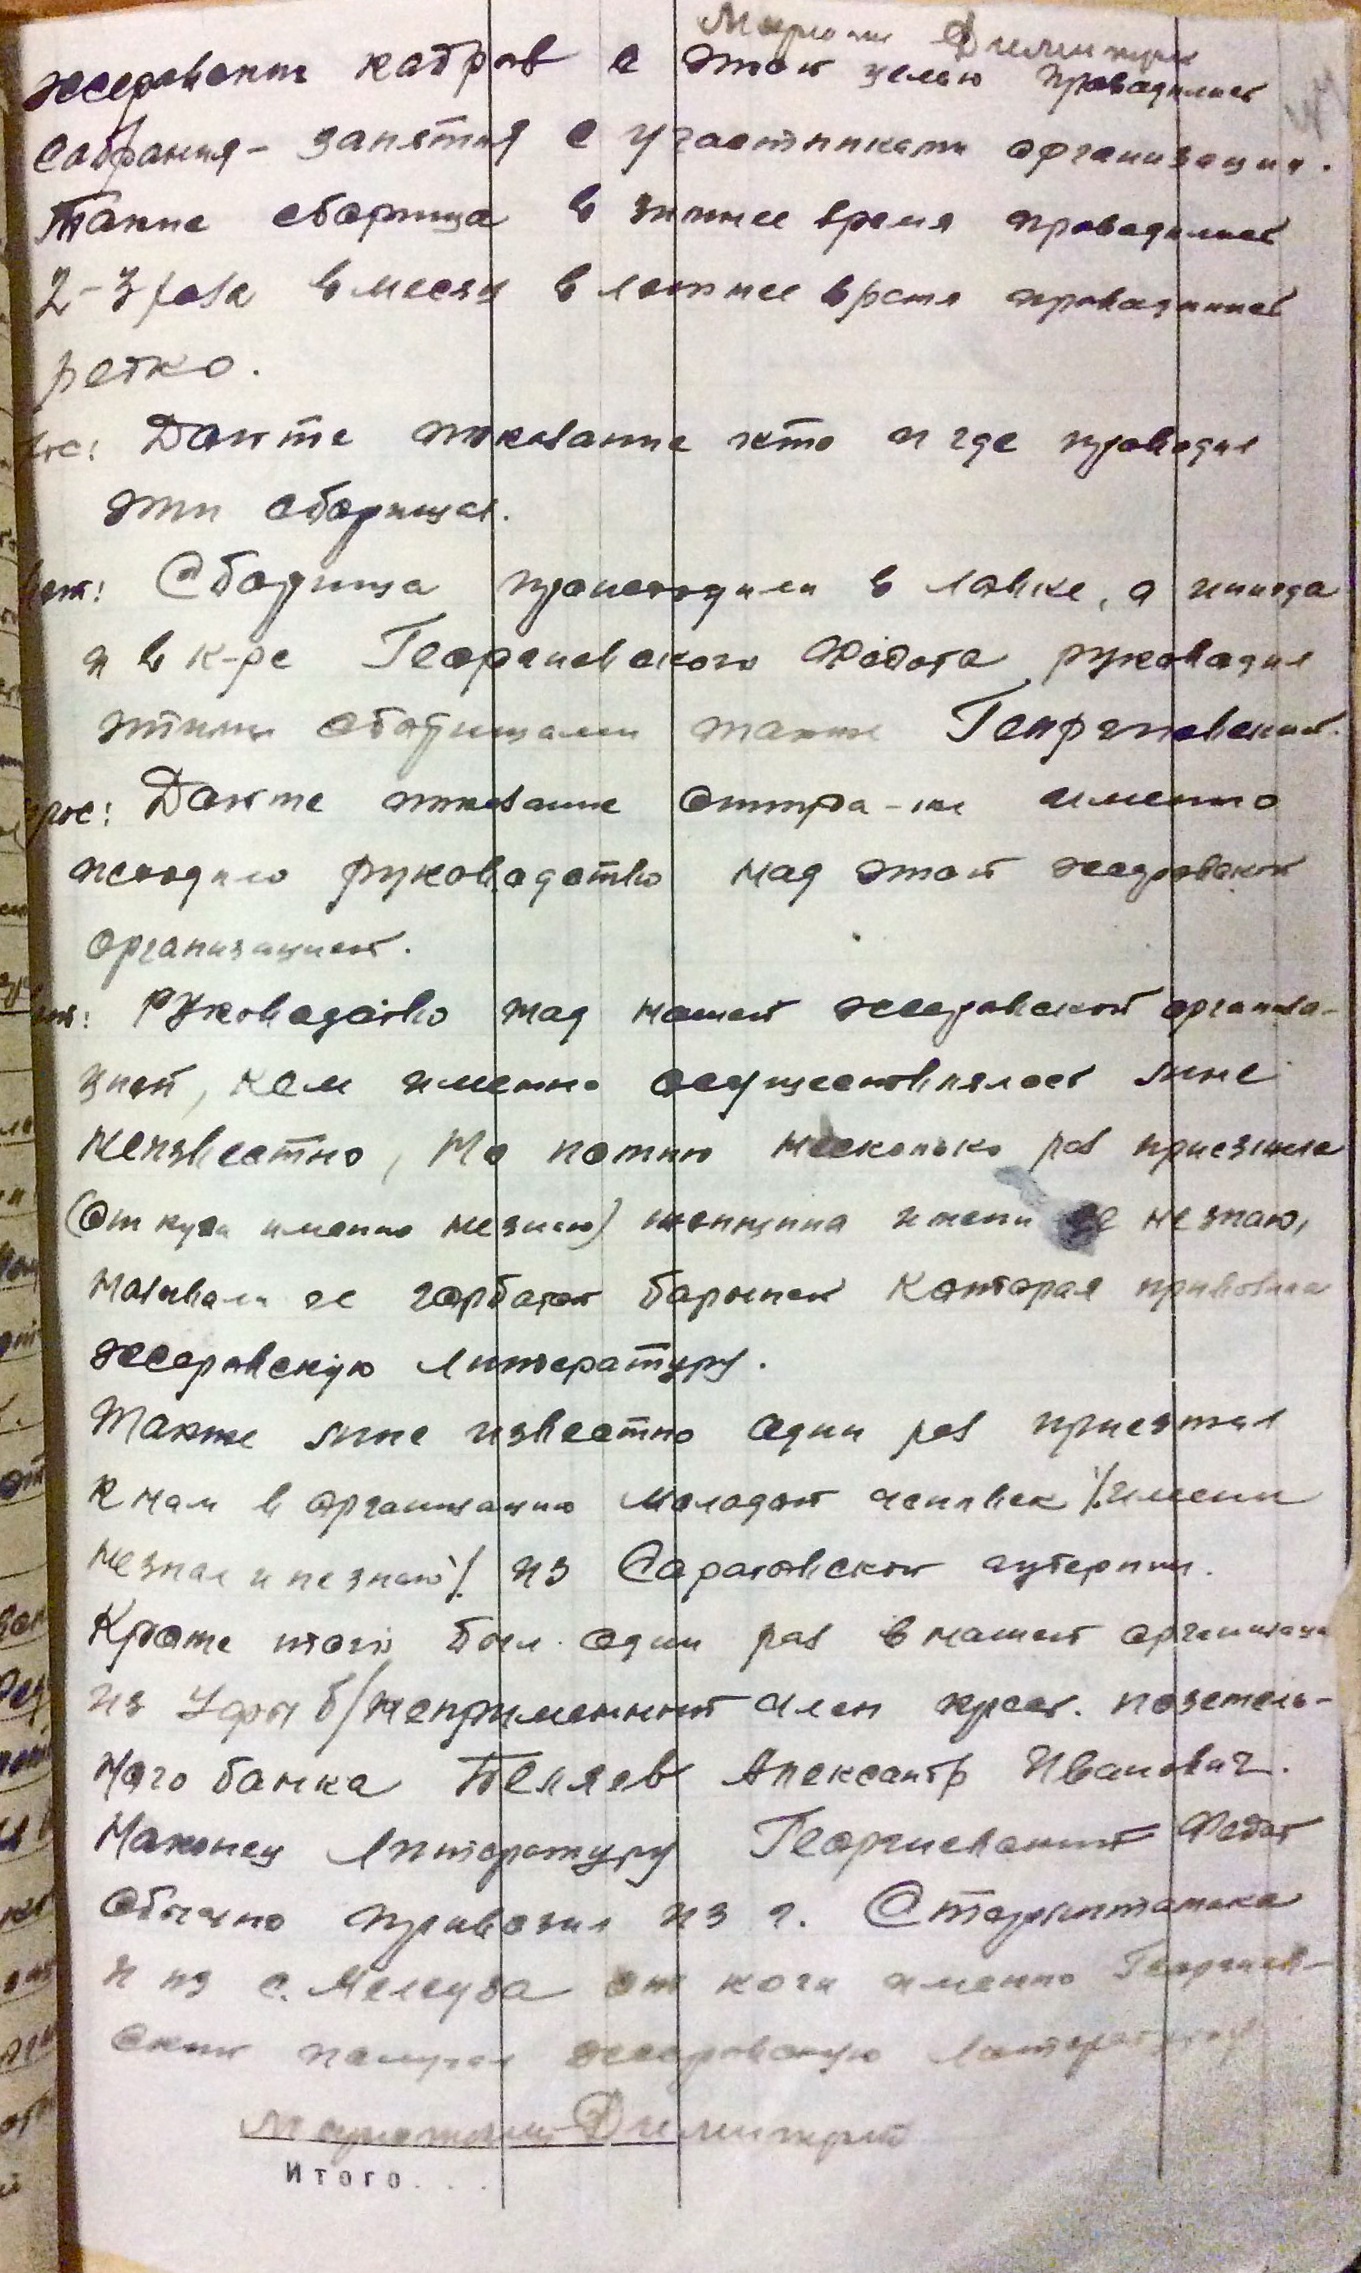 Димитрий
эсеровских кадров с этой целью проводились
собрания - занятия с участниками организации.
Такие сборища в зимнее время проводились
2-3 раза в месяц в летнее время проводились
ретко.
рос: Дайте показание кто и где проводил
эти сборища.
вет: Сборища происходили в лавке, а иногда
и в к-ре Георгиевского Федота руководил
этими сборищами также Георгиевский.
рос: Дайте показание откуда-же именно
исходило руководство над этой эсеровской
организацией.
вет: Руководство над нашей эсеровской организа-
цией, кем именно осуществлялось мне
неизвестно, но помню несколько раз приезжала
(от куда именно незнаю) женщина имени ее не знаю,
называли ее горбатой барышней которая привозила
эсеровскую литературу.
Также мне известно один раз приезжал
к нам в организацию молодой человек /имени
незнал и незнаю/ из Саратовской губернии.
Кроме того был один раз в нашей организации
из Уфы б/непременный член крест. поземель-
ного банка Беляев Александр Иванович.
Наконец литературу Георгиевский Федот
обычно привозил из г. Стерлитамака
и из с. Мелеуза от кого именно Георгиев-
ский получал эсеровскую литературу
Димитрий
Итого. . .